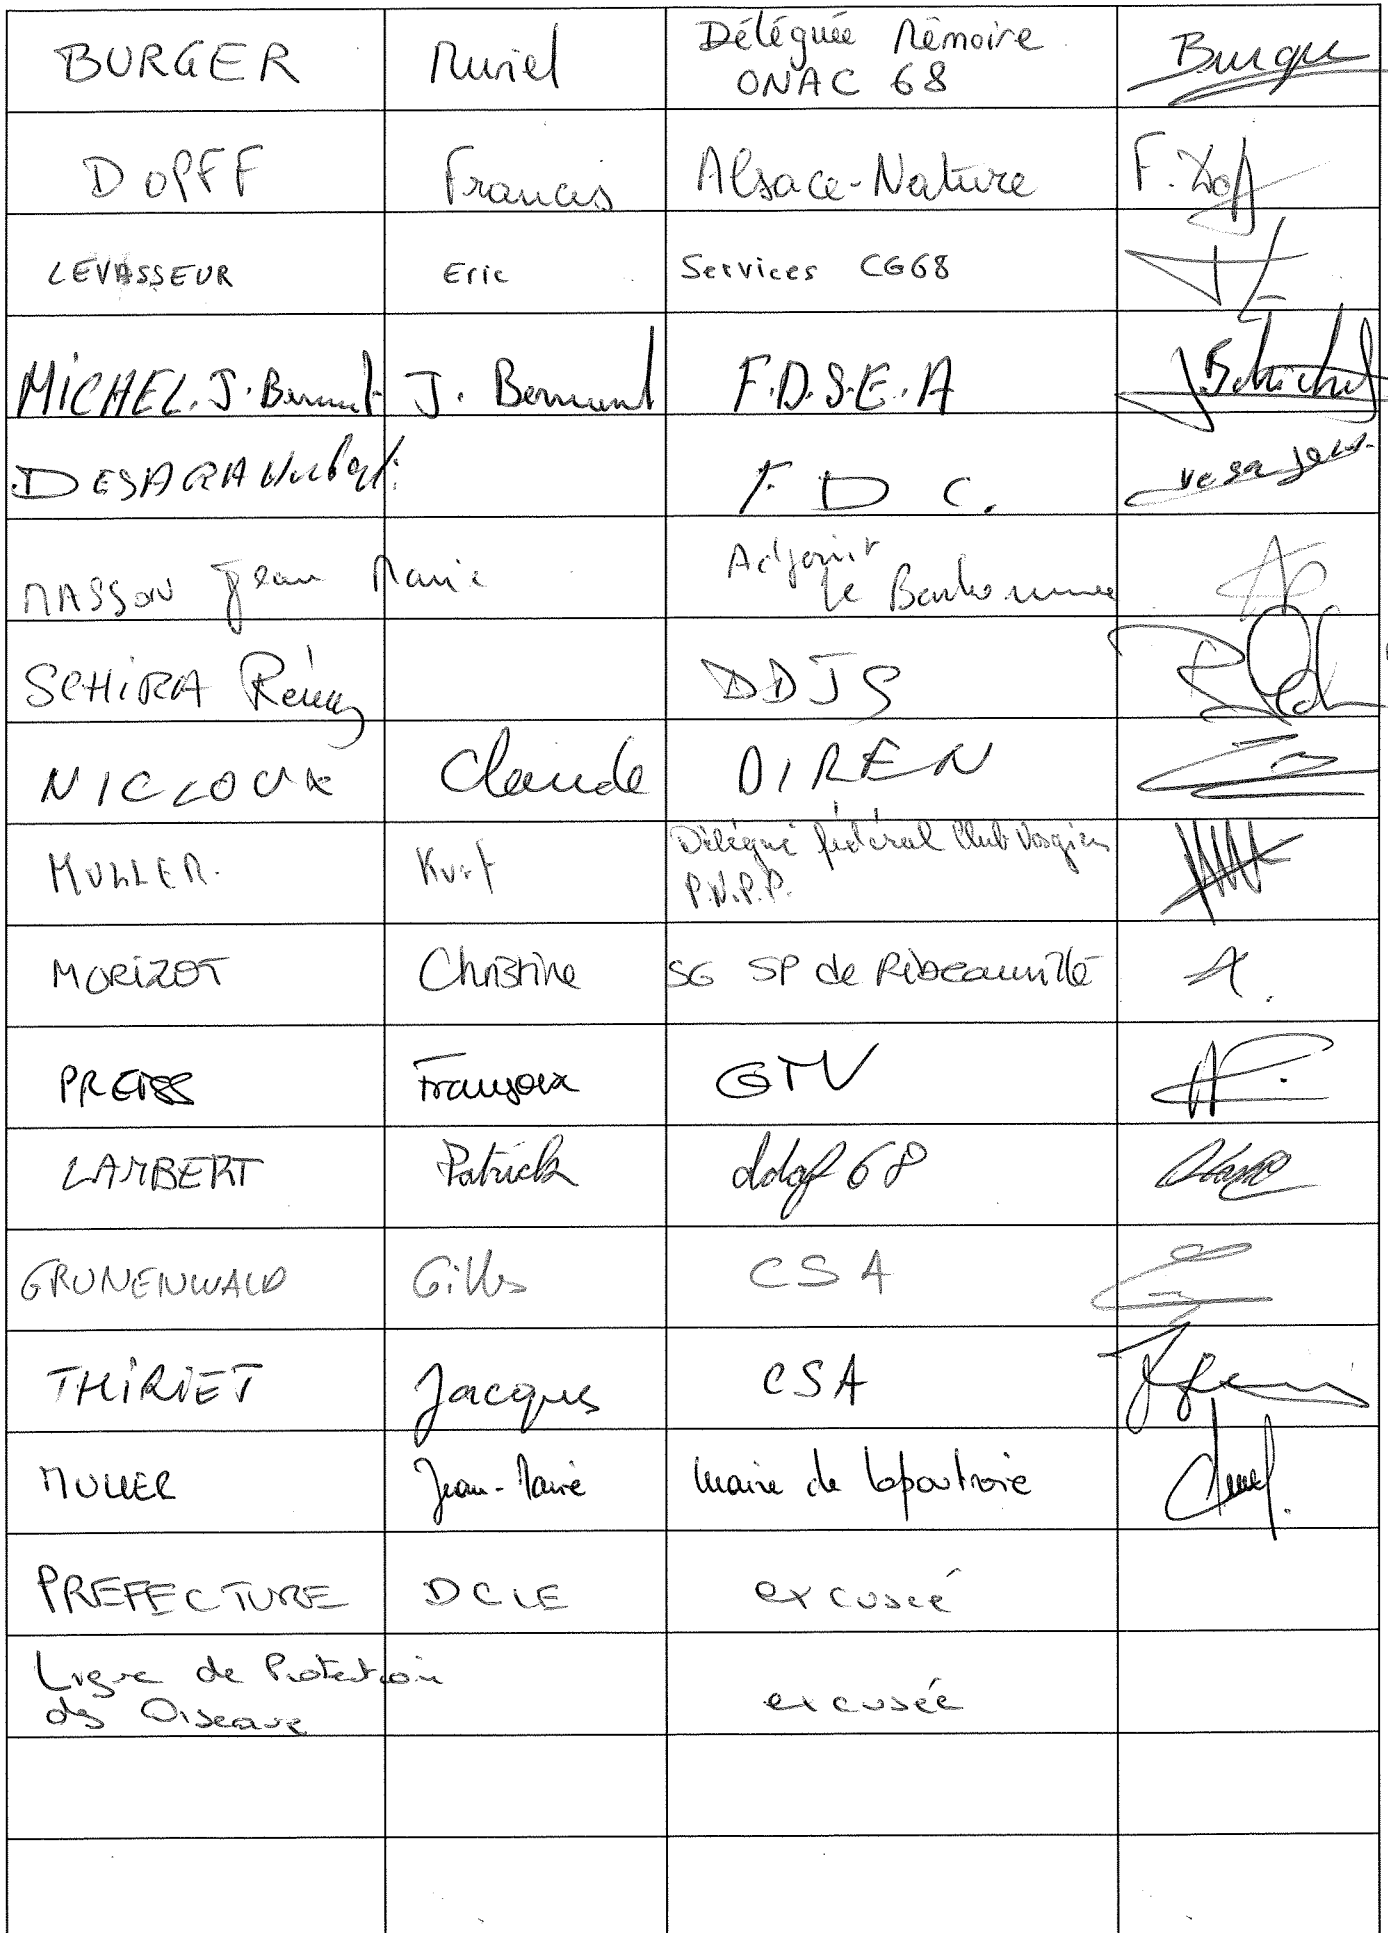 BURGER Muriel Déléguée Mémoire
ONAC 68 Burger
DOPFF Francis Alsace-Nature F. Dopff
LEVASSEUR Eric Services CG68
MICHEL. J. Bernard J. Bernard F.D.S.E.A
F D C.
MASSON Jean Marie Adjoint
le Bonhomme
SCHIRA Rémy DDJS
NICLOUX Claude DIREN
MULLER. Kurt Délégué fédéral Club Vosgien
P.N.P.P.
MORIZOT Christine SG SP de Ribeauvillé
PREISS Françoix GTV
LAMBERT Patrick ddaf 68
GRUNENWALD Gilles CSA
THIRIET Jacques CSA
MULLER Jean-Marie Maire de Lapoutroie
PREFECTURE DCLE excusée
Ligue de Protection
des Oiseaux excusée